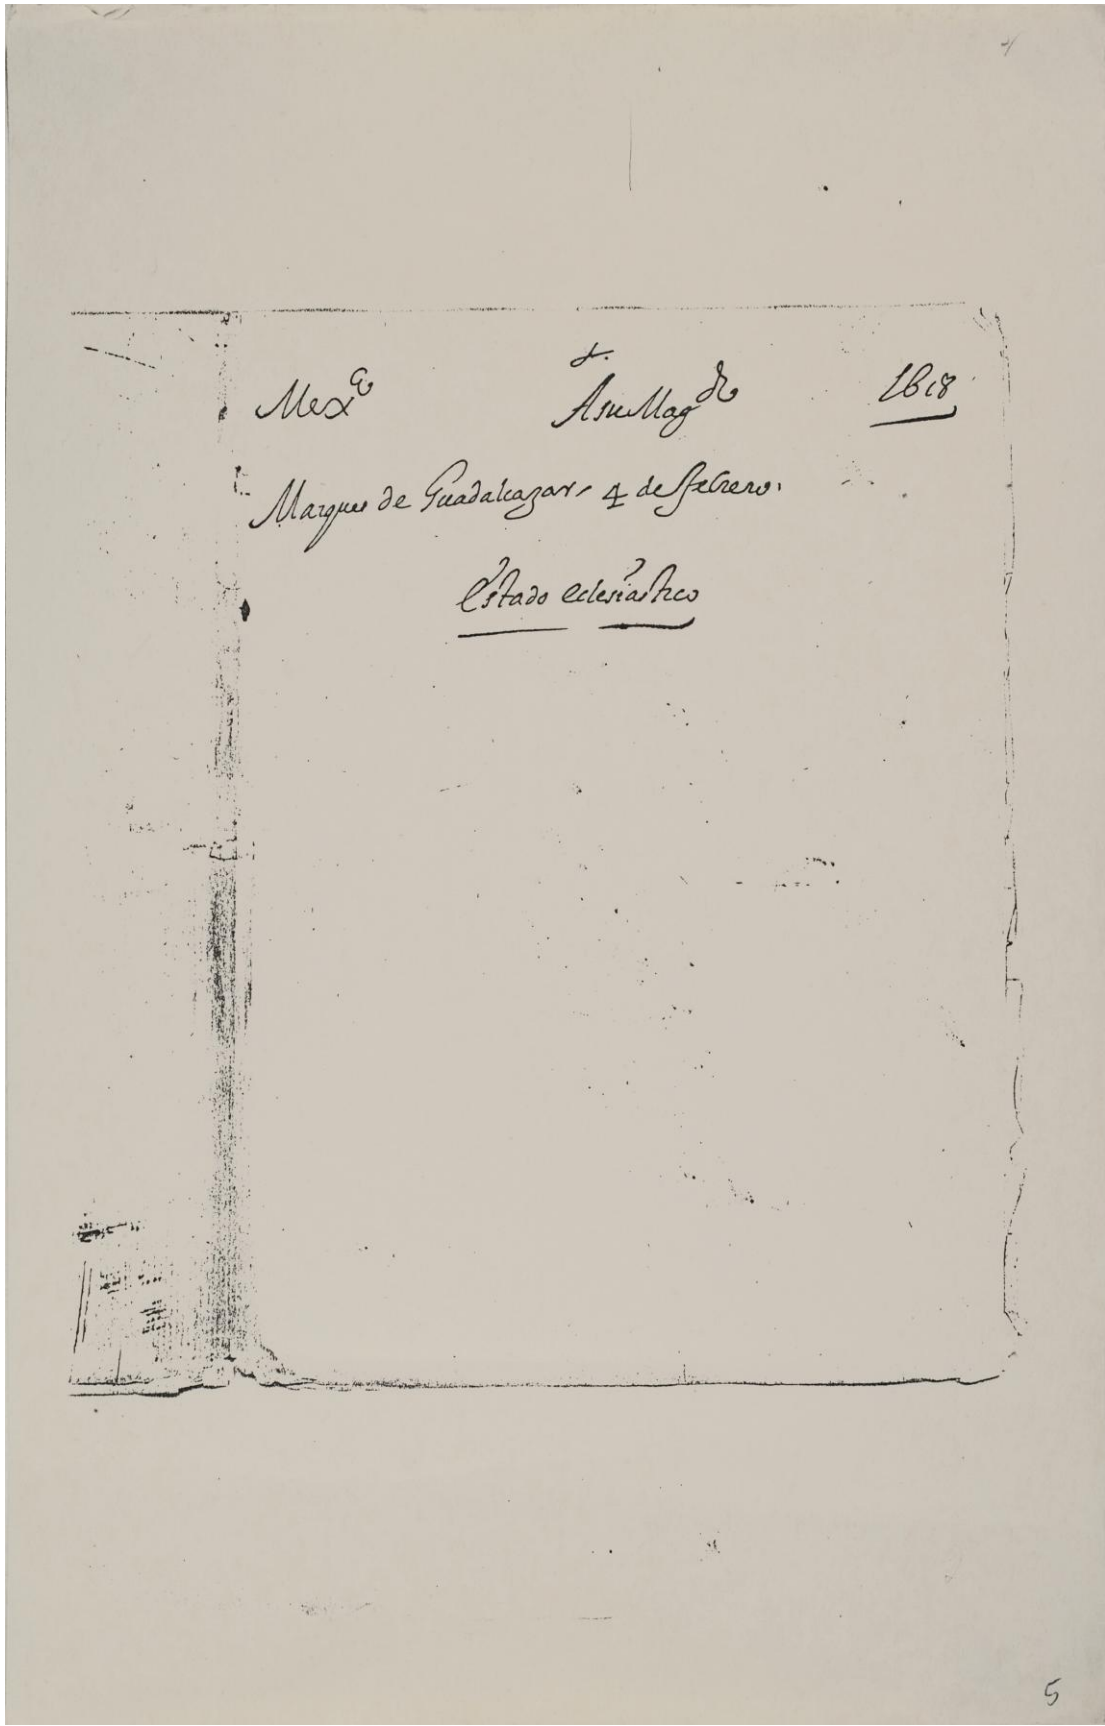 †
Mexco A su Magde 1618
Marques de Guadalcazar, 4 de febrero.
Estado eclesiastico
5